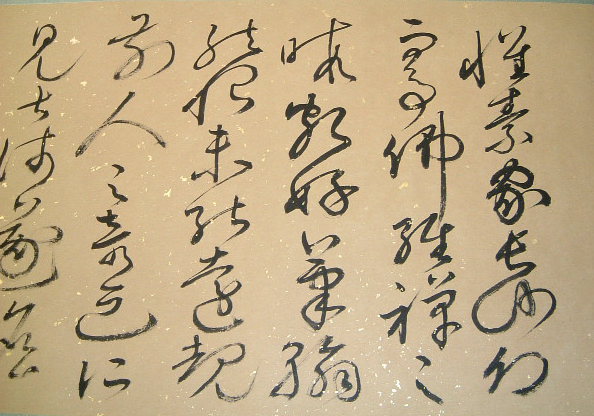 懷素家長沙幼
而事佛經禪之
暇頗好筆翰
然恨未能遠覩
前人之奇迹所
見甚淺遂